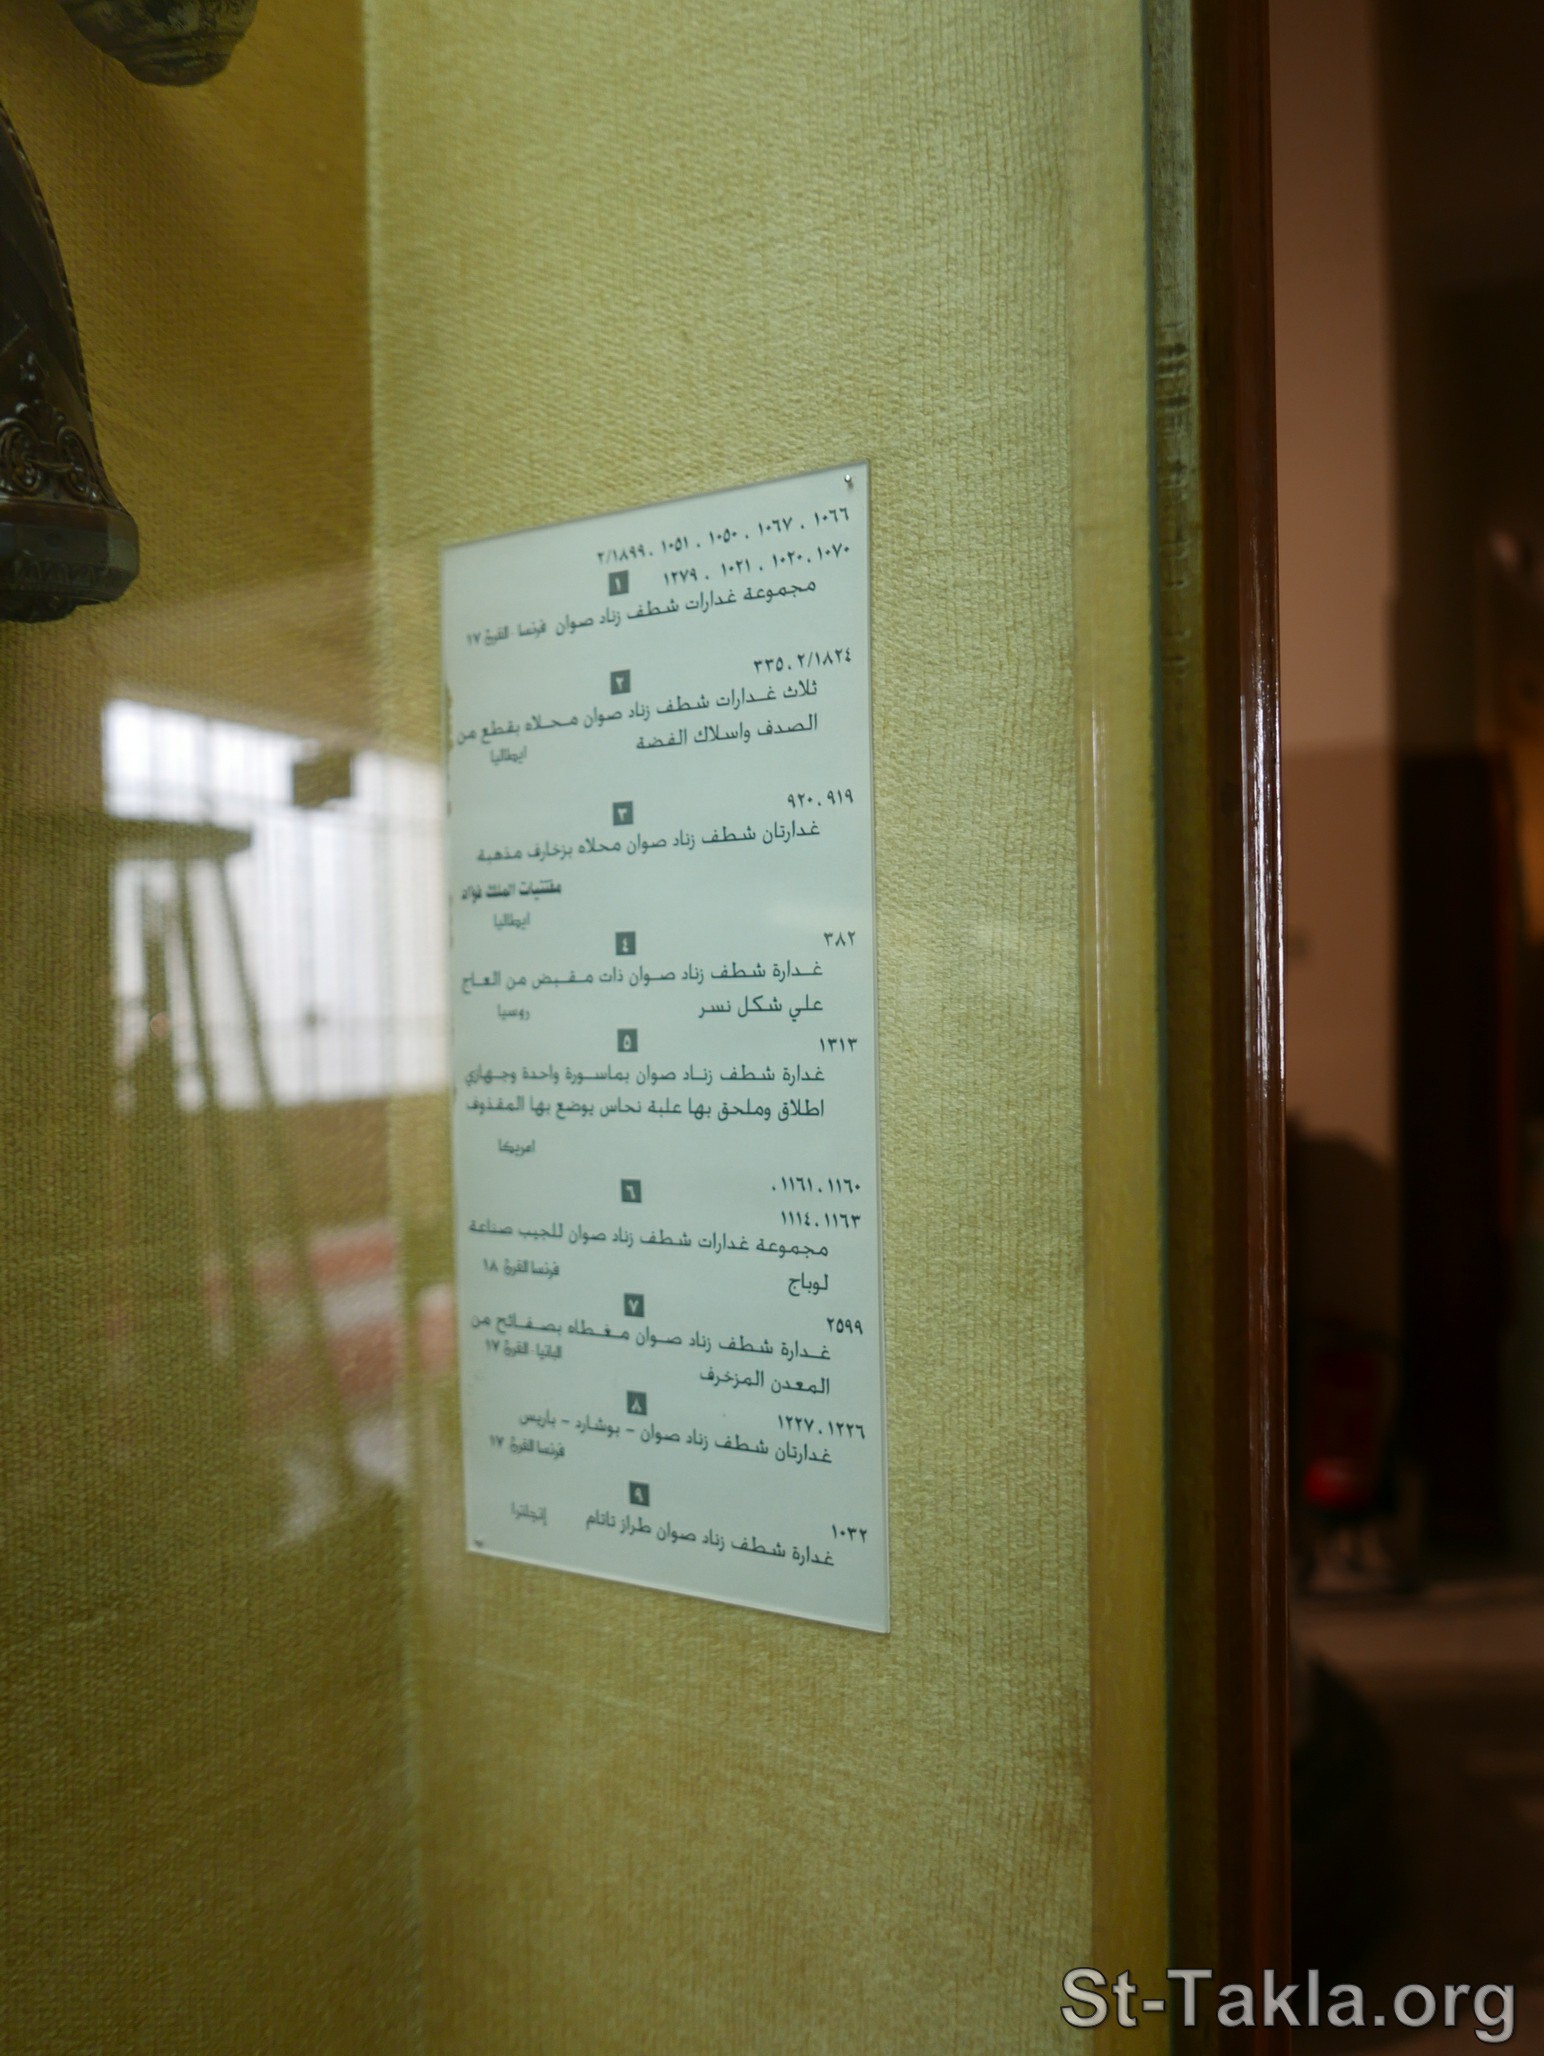 ١٠٦٦ ، ١٠٦٧ ، ١٠٥٠ ، ١٠٥١ ، ٢/١٨٩٩
١٠٧٠ ، ١٠٢٠ ، ١٠٢١ ، ١٢٧٩
١
مجموعة غدارات شطف زناد صوان فرنسا - القرن ١٧
٢/١٨٢٤ ، ٣٣٥
٢
ثلاث غدارات شطف زناد صوان محلاه بقطع من
الصدف واسلاك الفضة
ايطاليا
٩١٩ ، ٩٢٠
٣
غدارتان شطف زناد صوان محلاه بزخارف مذهبة
مقتنيات الملك فؤاد
ايطاليا
٣٨٢
٤
غدارة شطف زناد صوان ذات مقبض من العاج
علي شكل نسر
روسيا
١٣١٣
٥
غدارة شطف زناد صوان بماسورة واحدة وجهازي
اطلاق وملحق بها علبة نحاس يوضع بها المقذوف
امريكا
١١٦٠ ، ١١٦١ ،
٦
١١٦٣ ، ١١١٤
مجموعة غدارات شطف زناد صوان للجيب صناعة
لوباج
فرنسا القرن ١٨
٢٥٩٩
٧
غدارة شطف زناد صوان مغطاه بصفائح من
المعدن المزخرف
البانيا - القرن ١٧
١٢٢٦ ، ١٢٢٧
٨
غدارتان شطف زناد صوان – بوشارد – باريس
فرنسا القرن ١٧
١٠٣٢
٩
غدارة شطف زناد صوان طراز تاتام
إنجلترا
St-Takla.org